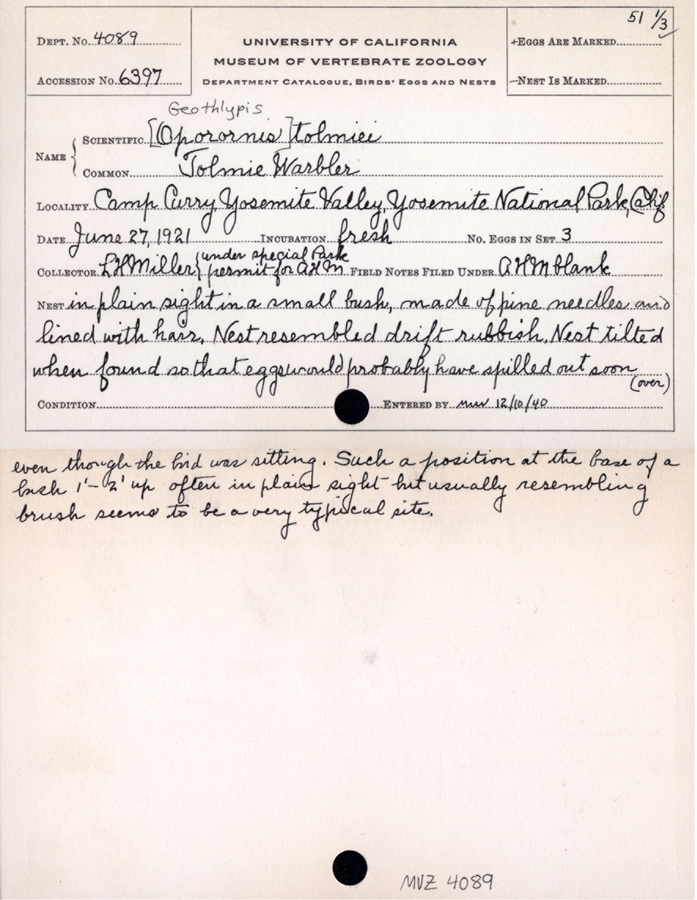 51 1/3
DEPT. NO. 4089
ACCESSION NO. 6397
UNIVERSITY OF CALIFORNIA
MUSEUM OF VERTEBRATE ZOOLOGY
DEPARTMENT CATALOGUE, BIRDS' EGGS AND NESTS
+EGGS ARE MARKED
—NEST IS MARKED
Geothlypis
NAME { SCIENTIFIC [Oporornis] tolmiei
COMMON Tolmie Warbler
LOCALITY Camp Curry, Yosemite Valley, Yosemite National Park, Calif
DATE June 27, 1921 INCUBATION fresh NO. EGGS IN SET 3
COLLECTOR L H Miller { under special Park permit for A H M FIELD NOTES FILED UNDER A H M blank
NEST in plain sight in a small bush, made of pine needles and
lined with hair. Nest resembled drift rubbish. Nest tilted
when found so that eggs would probably have spilled out soon
(over)
CONDITION ENTERED BY 12/10/40
even though the bird was sitting. Such a position at the base of a
bush 1'-2' up often in plain sight but usually resembling
brush seems to be a very typical site.
MVZ 4089